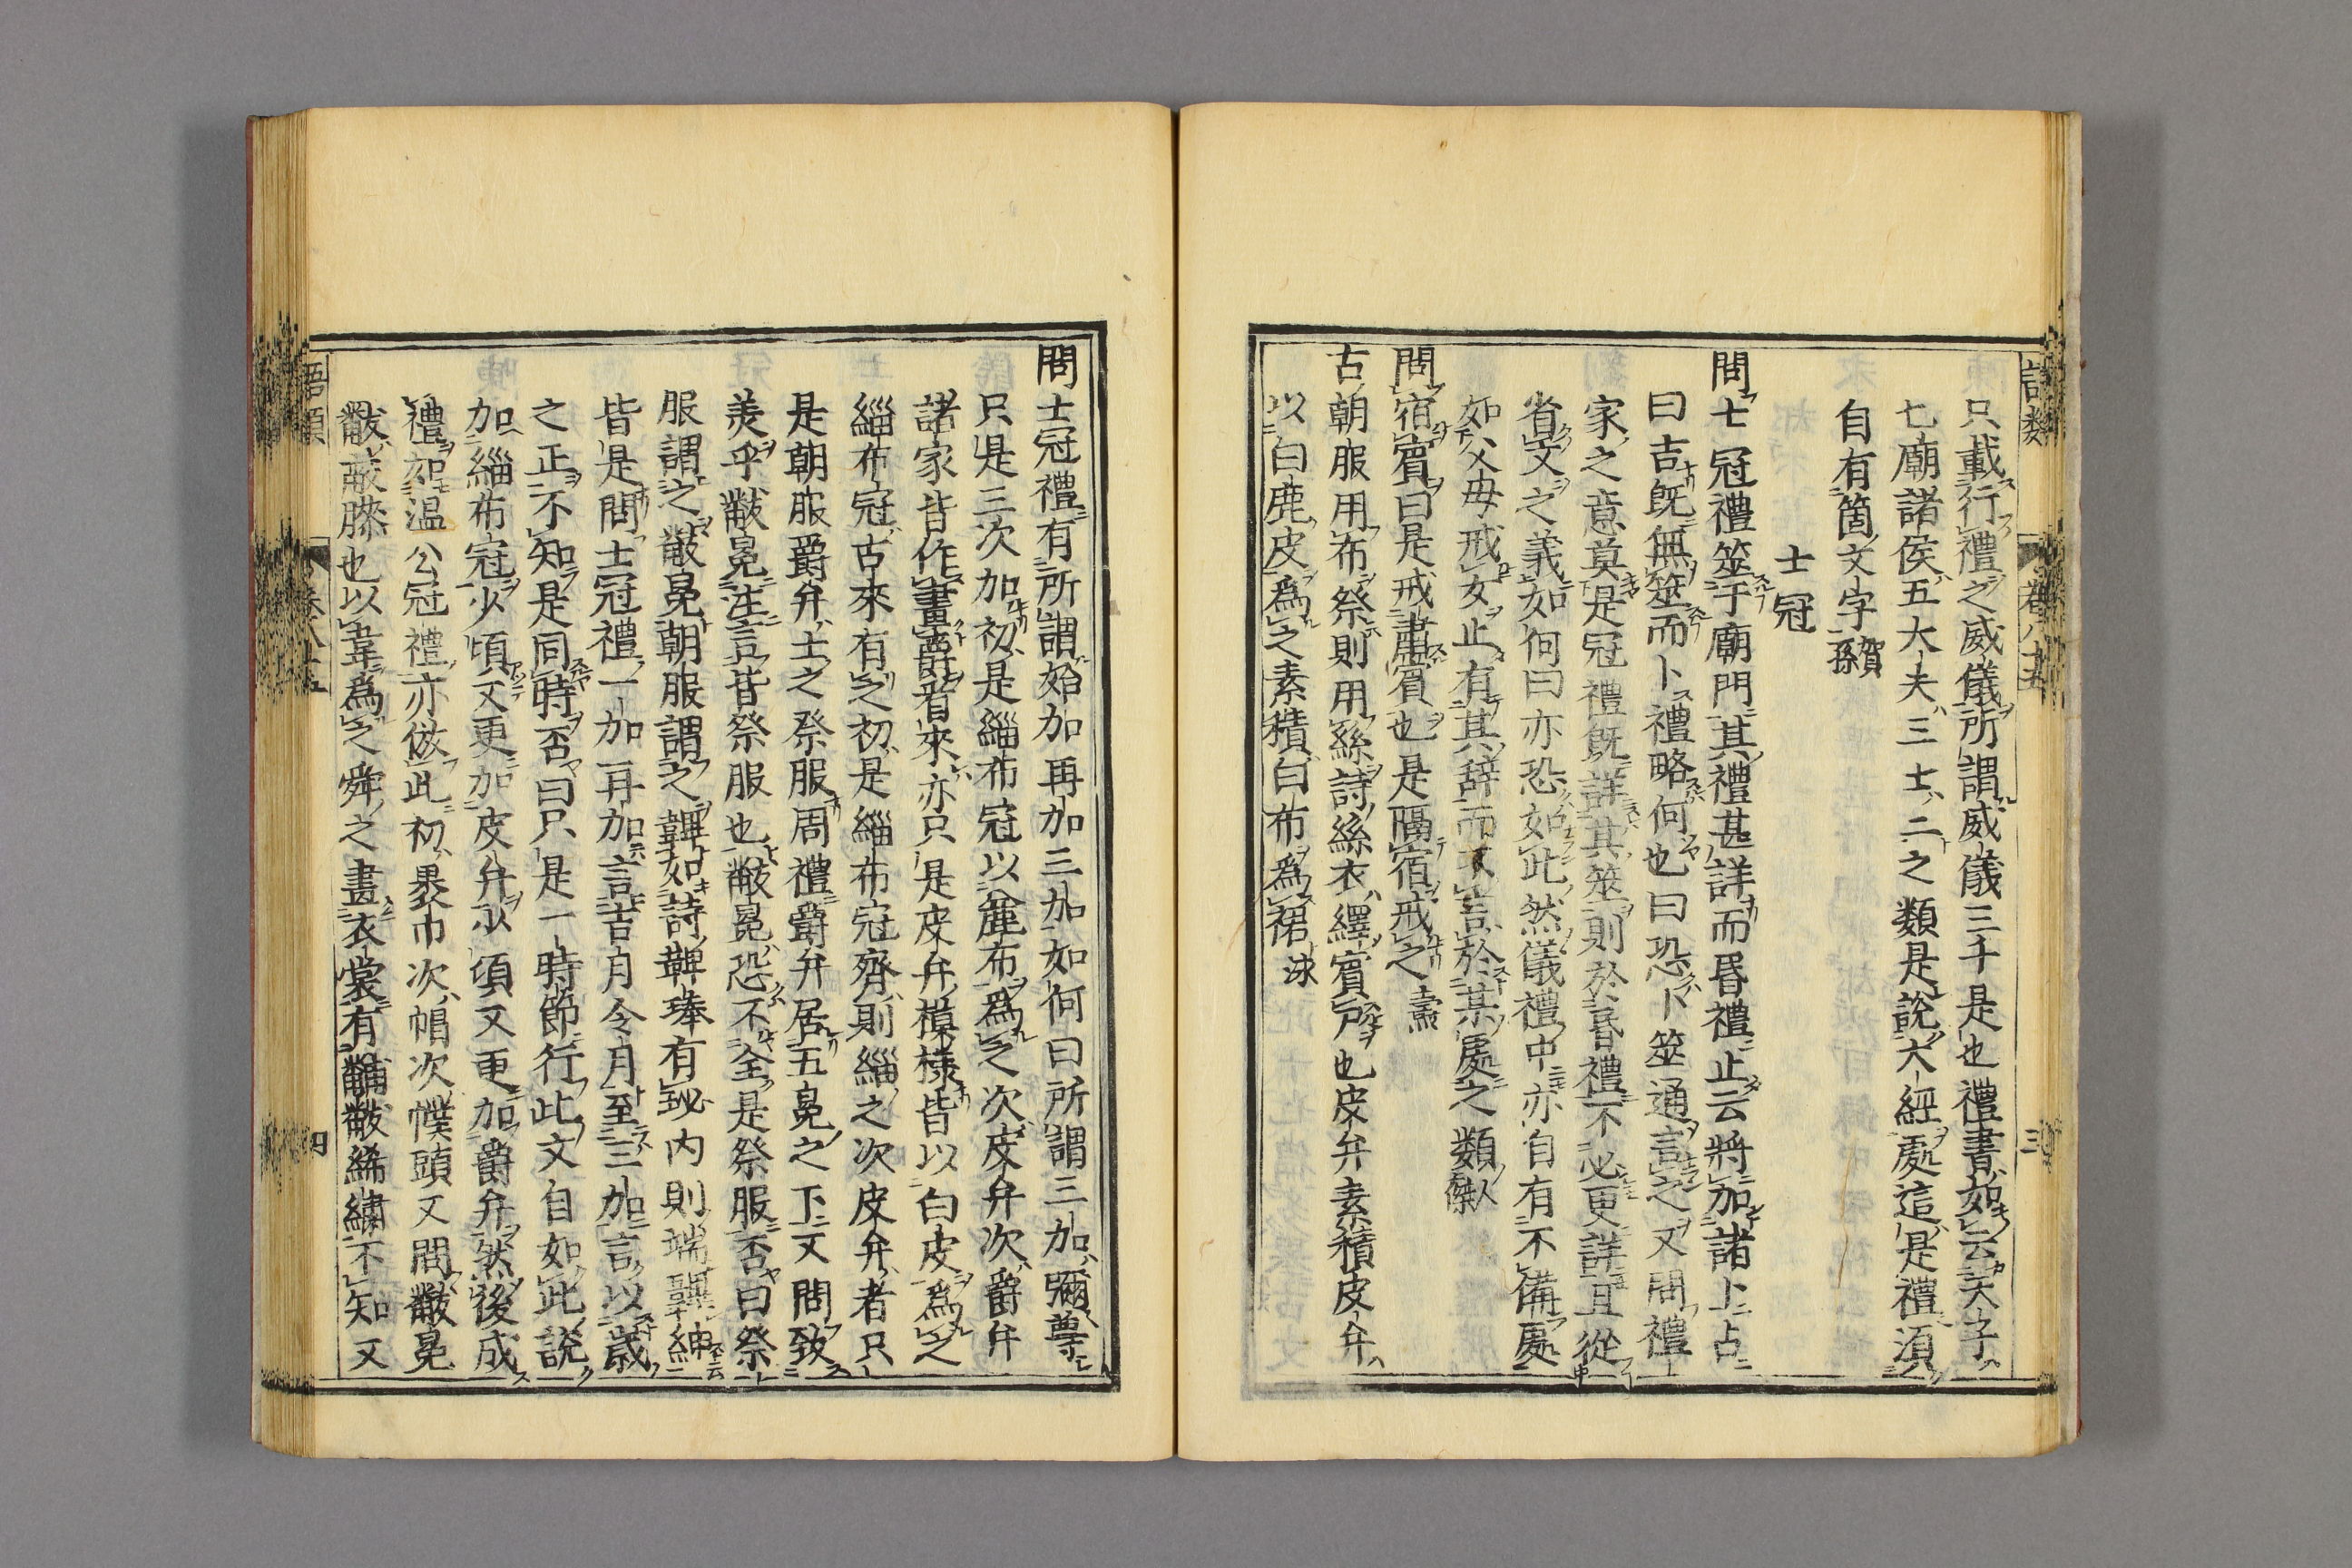 語類 卷八十五 三
只載行禮之威儀所謂威儀三千是也禮書如云天子
七廟諸侯五大夫三士二之類是說大經處這是禮須
自有箇文字賀孫
士冠
問士冠禮筮于廟門其禮甚詳而昏禮止云將加諸卜占
曰吉既無筮而卜禮略何也曰恐卜筮通言之又問禮
家之意莫是冠禮既詳其筮則於昏禮不必更詳且從
省文之義如何曰亦恐如此然儀禮中亦自有不備處
如父母戒女止有其辭而不言於某處之類人傑
問宿賓曰是戒肅賓也是隔宿戒之燾
古朝服用布祭則用絲詩絲衣繹賓尸也皮弁素積皮弁
以白鹿皮爲之素積白布爲裙泳
問士冠禮有所謂始加再加三加如何曰所謂三加彌尊
只是三次加初是緇布冠以麄布爲之次皮弁次爵弁
諸家皆作畫爵看來亦只是皮弁模樣皆以白皮爲之
緇布冠古來有之初是緇布冠齊則緇之次皮弁者只
是朝服爵弁士之祭服周禮爵弁居五冕之下又問致
美乎黻冕注言皆祭服也黻冕恐不全是祭服否曰祭
服謂之黻冕朝服謂之韠如詩鞞琫有珌內則端韠紳
皆是問士冠禮一加再加言吉月令月至三加言以歲
之正不知是同時否曰只是一時節行此文自如此說
加緇布冠少頃又更加皮弁少頃又更加爵弁然後成
禮如溫公冠禮亦倣此初裹巾次帽次幞頭又問黻冕
黻蔽膝也以韋爲之舜之畫衣裳有黼黻絺繡不知又
語類 卷八十五 四